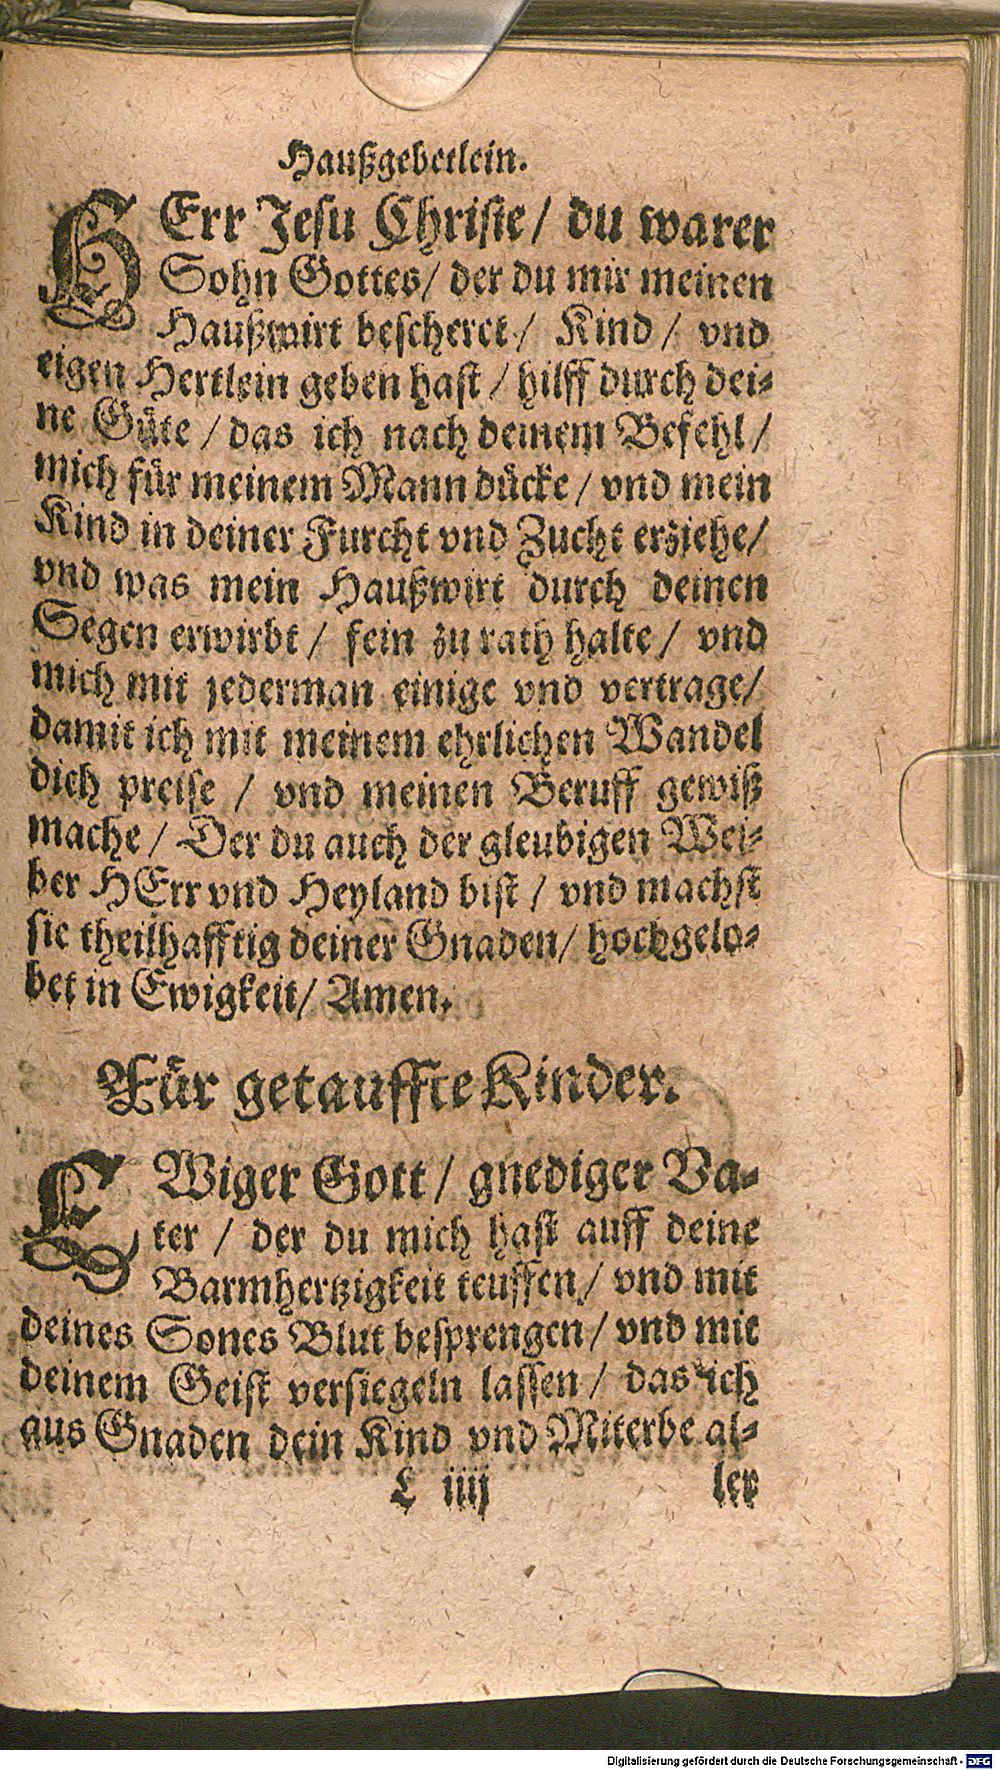 Haußgebetlein.
HErr Jesu Christe / du warer
Sohn Gottes / der du mir meinen
Haußwirt bescheret / Kind / vnd
eigen Hertlein geben hast / hilff durch dei⸗
ne Güte / das ich nach deinem Befehl /
mich für meinem Mann dücke / vnd mein
Kind in deiner Furcht vnd Zucht erziehe /
vnd was mein Haußwirt durch deinen
Segen erwirbt / fein zu rath halte / vnd
mich mit jederman einige vnd vertrage /
damit ich mit meinem ehrlichen Wandel
dich preise / vnd meinen Beruff gewiß
mache / Der du auch der gleubigen Wei⸗
ber HErr vnd Heyland bist / vnd machst
sie theilhafftig deiner Gnaden / hochgelo⸗
bet in Ewigkeit / Amen.
Für getauffte Kinder.
EWiger Gott / gnediger Va⸗
ter / der du mich hast auff deine
Barmhertzigkeit teuffen / vnd mit
deines Sones Blut besprengen / vnd mit
deinem Geist versiegeln lassen / das ich
aus Gnaden dein Kind vnd Miterbe al⸗
L iiij ler
Digitalisierung gefördert durch die Deutsche Forschungsgemeinschaft - DFG